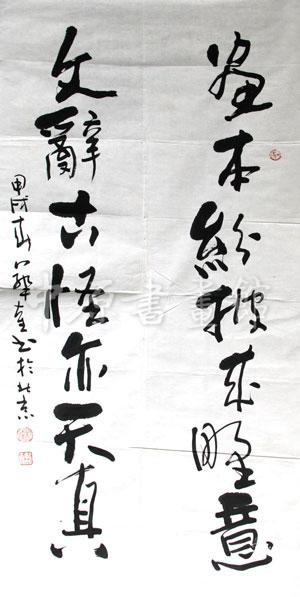 畫本紛披來野意
文辭古怪亦天真
甲戌春 書於北京
書畫館